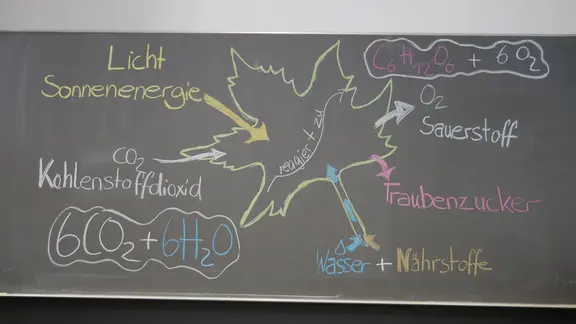 Licht
Sonnenenergie
C6H12O6 + 6O2
O2
Sauerstoff
CO2
Kohlenstoffdioxid
reagiert zu
Traubenzucker
6CO2 + 6H2O
Wasser + Nährstoffe